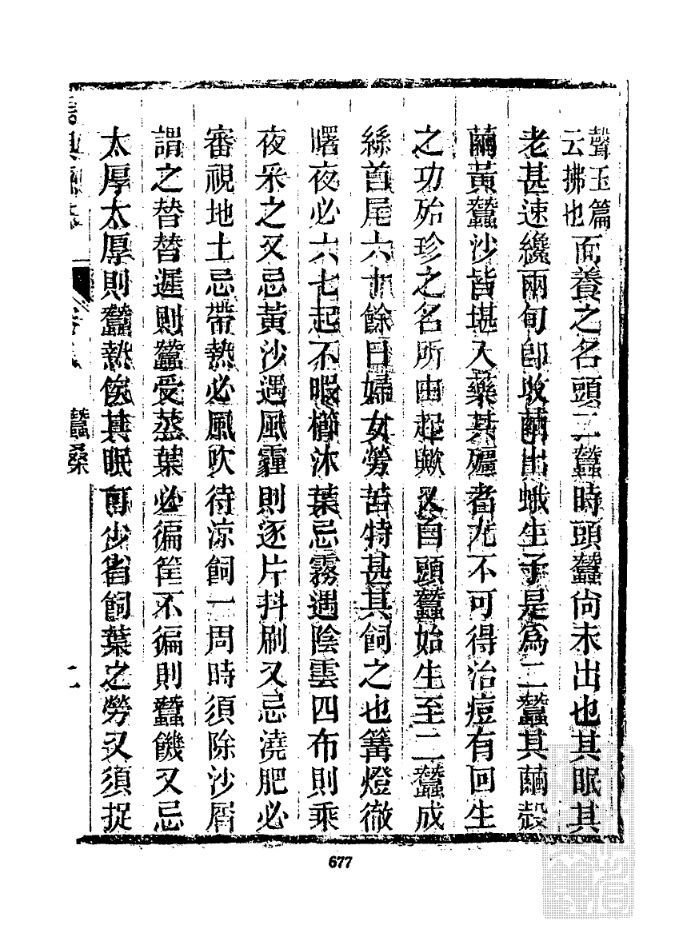 聲玉篇
云拂也
而養之名頭二蠶時頭蠶尙未出也其眠其
老甚速纔兩旬卽收繭出蛾生子是爲二蠶其繭殼
繭黃蠶沙皆堪入藥其殭者尤不可得治痘有回生
之功殆珍之名所由起歟又自頭蠶始生至二蠶成
絲首尾六十餘日婦女勞苦特甚其飼之也篝燈徹
曙夜必六七起不暇櫛沐葉忌霧遇陰雲四布則乘
夜采之又忌黃沙遇風霾則逐片抖刷又忌澆肥必
審視地土忌帶熱必風吹待涼飼一周時須除沙屑
謂之替替遲則蠶受蒸葉必徧筐不徧則蠶饑又忌
太厚太厚則蠶熱俟其眠可少省飼葉之勞又須捉
蠶桑
677